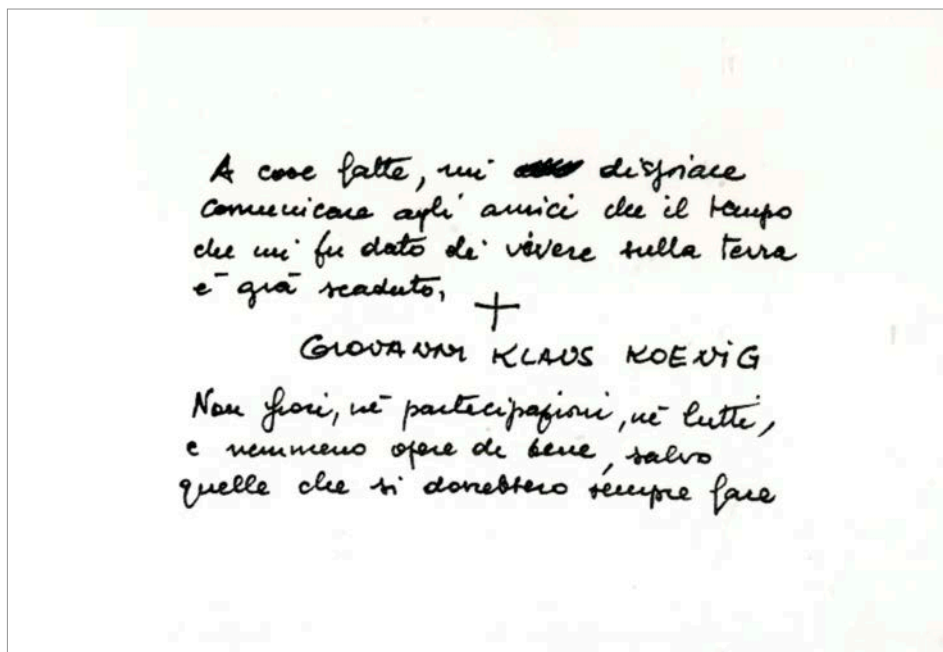 A cose fatte, mi dispiace
comunicare agli amici che il tempo
che mi fu dato di vivere sulla terra
è già scaduto,
GIOVANNI KLAUS KOENIG
Non fiori, nè partecipazioni, nè lutti,
e nemmeno opere di bene, salvo
quelle che si dovrebbero sempre fare